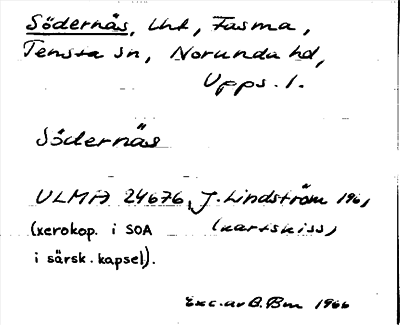 Södernäs, lht, Fasma,
Tensta sn, Norunda hd,
Upps. l.
Södernäs
ULMA 24676, J. Lindström 1961
(xerokop. i SOA (kartskiss)
i särsk. kapsel).
Exc. av B. Bm 1966